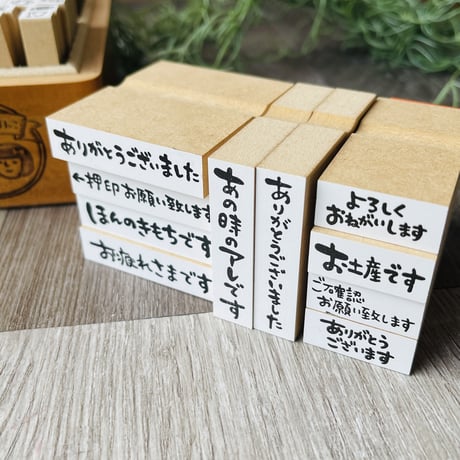 ありがとうございました
←押印お願い致します
ほんのきもちです
お疲れさまです
あの時のアレです
ありがとうございました
よろしく
おねがいします
お土産です
ご確認
お願い致します
ありがとう
ございます